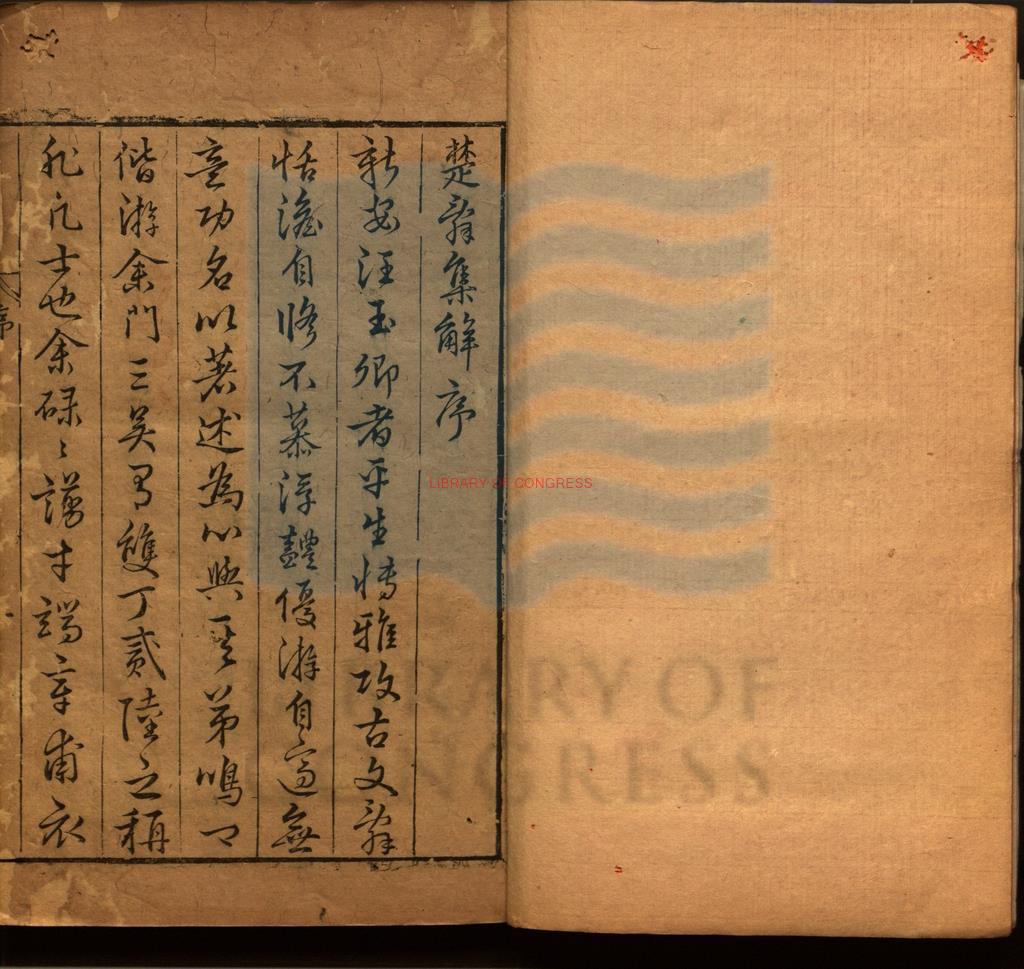 楚辭集解序
新安汪玉卿者平生博雅攻古文辭
恬澹自脩不慕浮豔優游自適無
意功名以著述為心與其弟鳴卿
偕游余門三吳有雙丁貳陸之稱
非凡士也余碌〻謭才謁章甫衣
序
LIBRARY OF CONGRESS
LIBRARY OF
CONGRESS